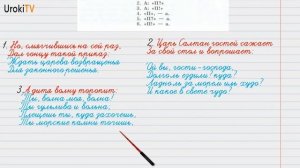 UrokiTV
2. А: «П?»
3. А: «П!»
4. «П», — а.
5. «П?» — а.
6. «П!» — а.
1. Но, смягчившись на сей раз,
Дал гонцу такой приказ:
"Ждать царева возвращенья
Для законного решенья.
2. Царь Салтан гостей сажает
За свой стол и вопрошает:
Ой вы, гости-господа,
Долго ль ездили? куда?
Ладно ль за морем иль худо?
И какое в свете чудо?
3 А дитя волну торопит:
"Ты, волна моя, волна!
Ты гульлива и вольна;
Плещешь ты, куда захочешь,
Ты морские камни точишь,